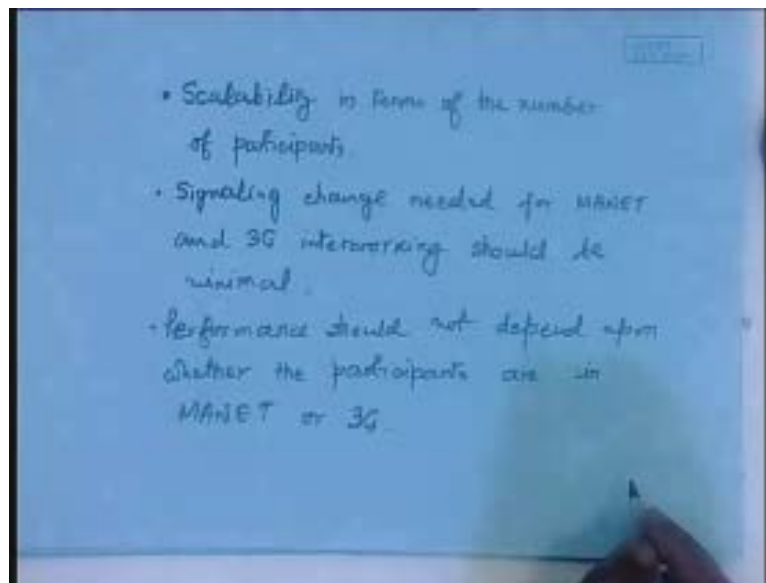 • Scalability in terms of the number
of participants.
• Signaling change needed for MANET
and 3G interworking should be
minimal.
• Performance should not depend upon
whether the participants are in
MANET or 3G.